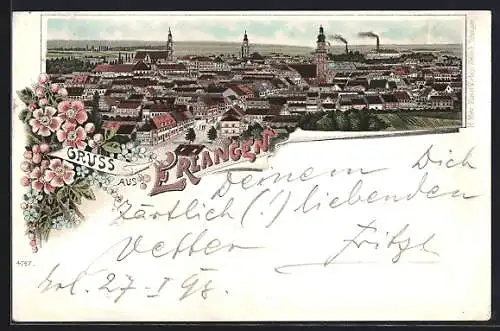 GRUSS
AUS
ERLANGEN
Deinem Dich
zärtlich (!) liebenden
Vetter Fritzl
27-I 98.
4747.